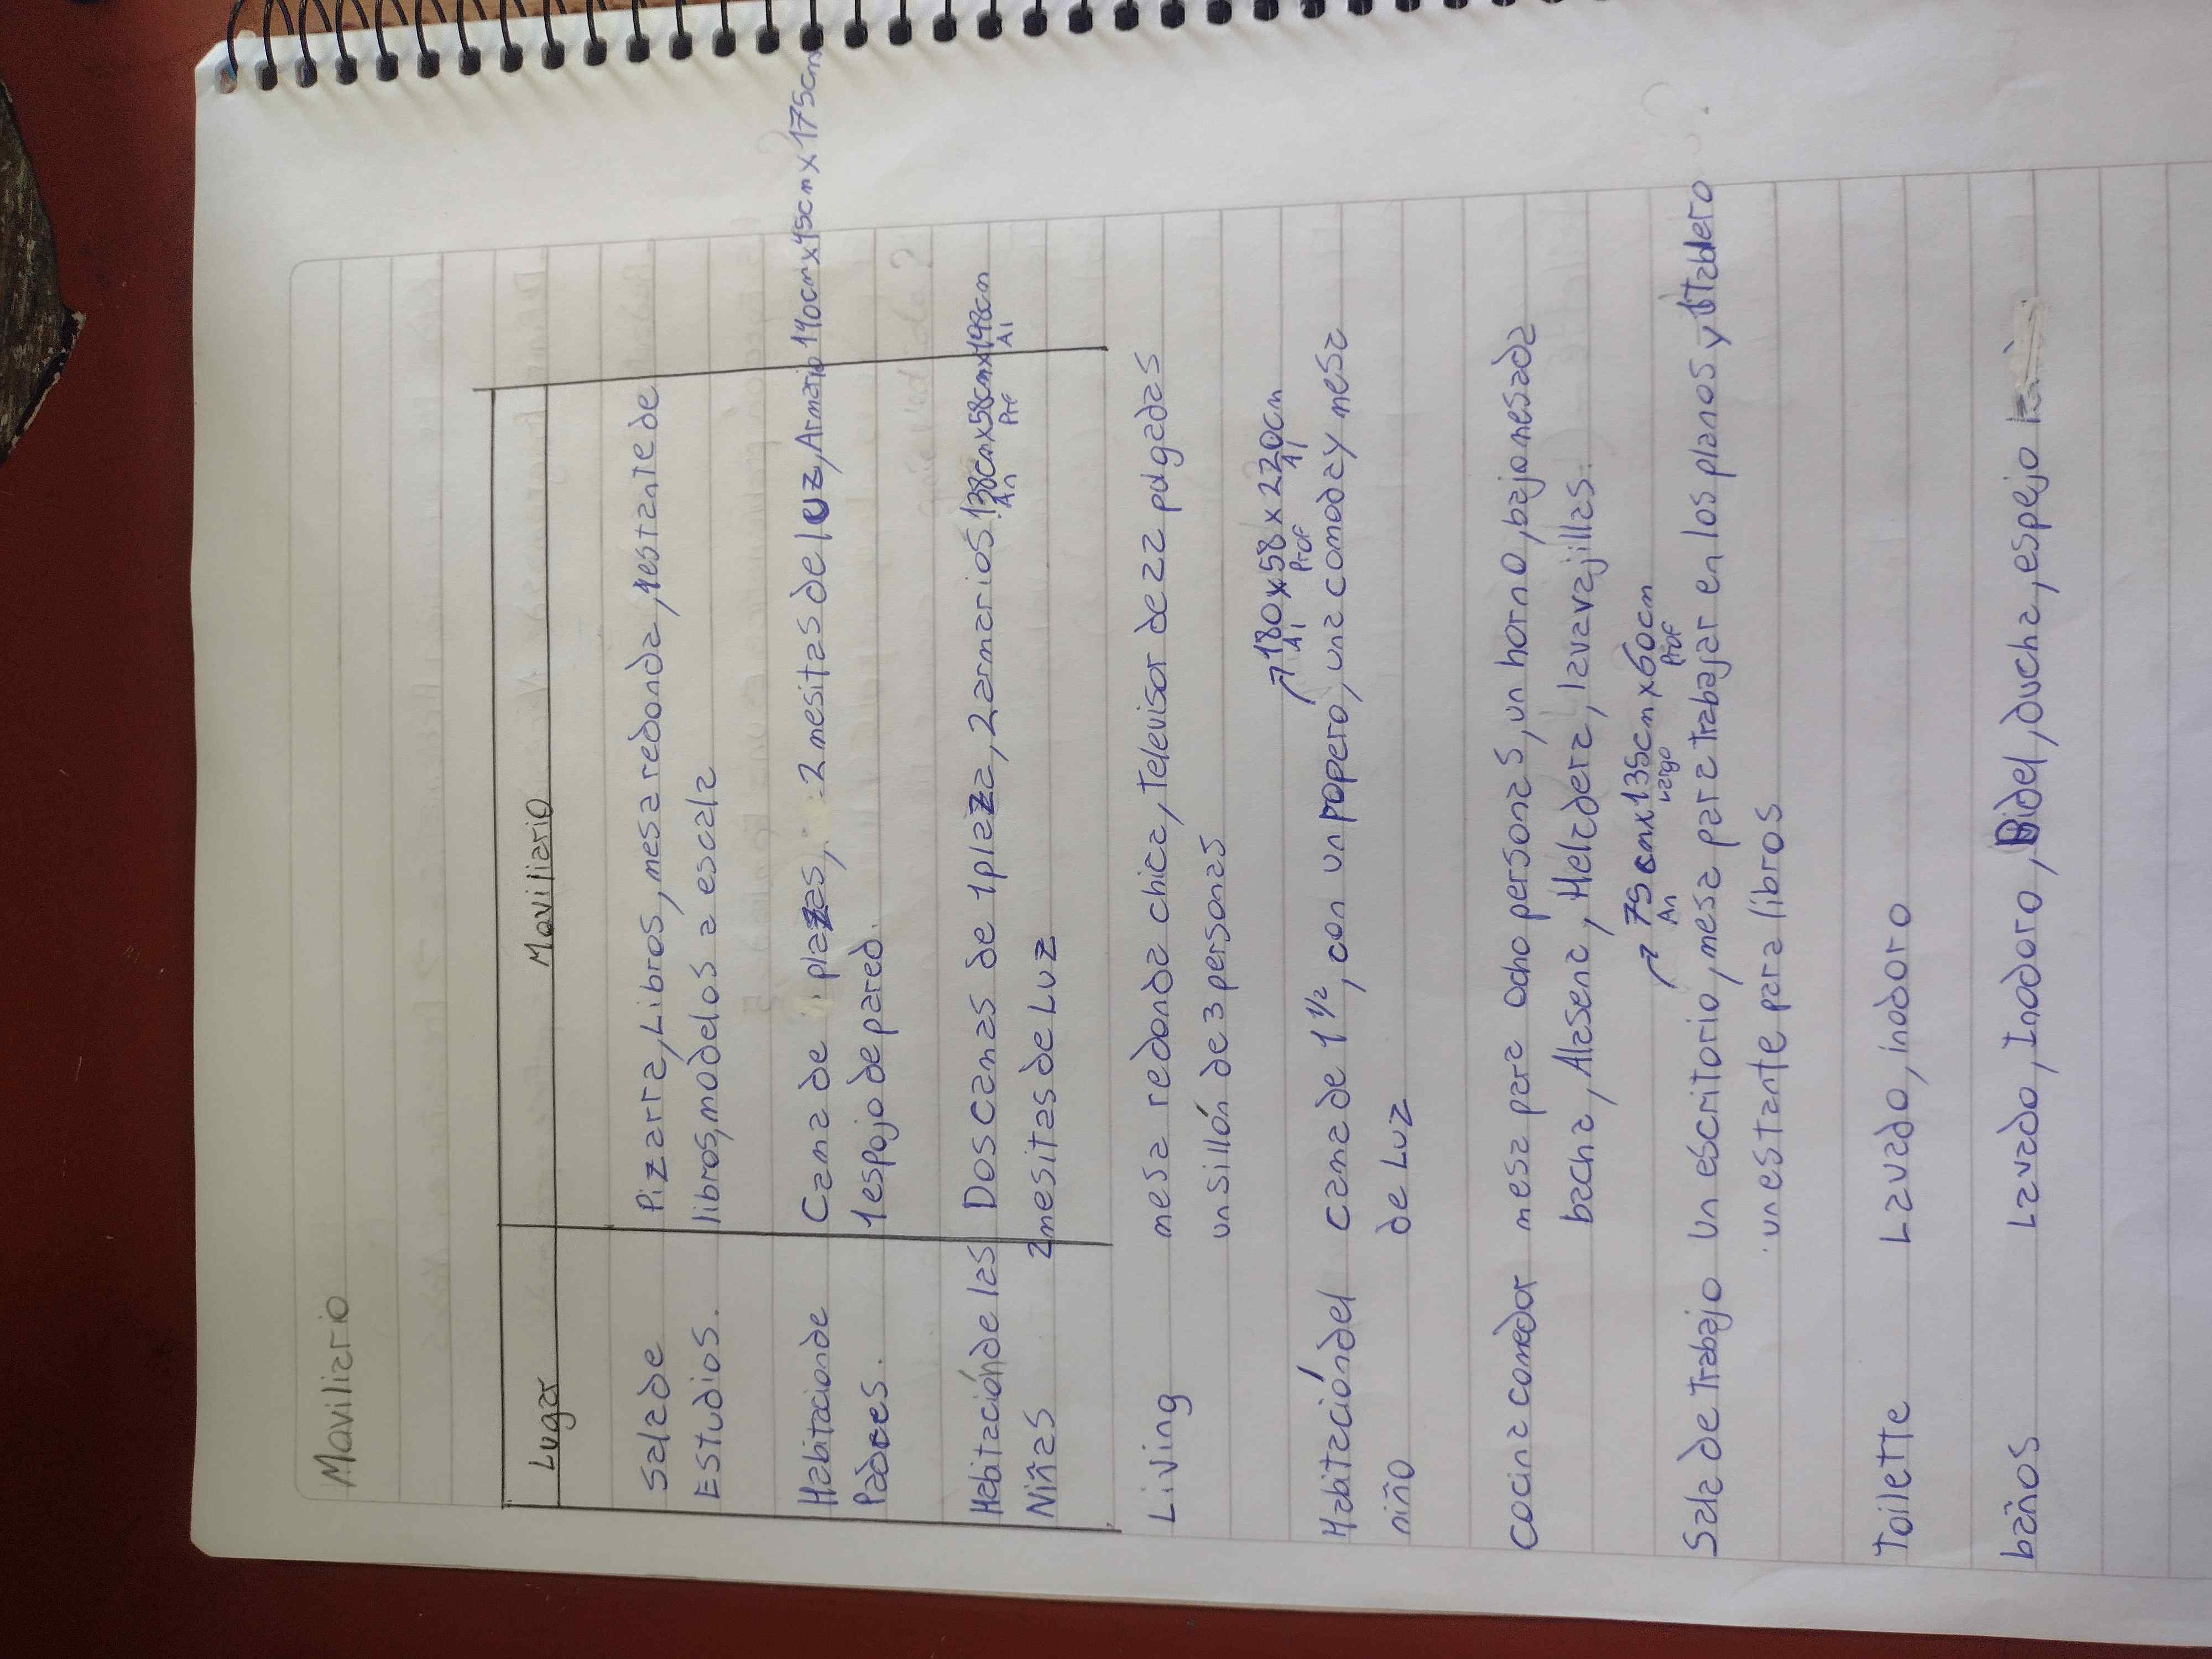 Maviliario
Lugar Maviliario
Sala de Pizarra, Libros, mesa redonda, 1 estante de
Estudios. libros, modelos a escala
Habitacion de Cama de plazas, 2 mesitas de luz, Armario 140cm x 45cm x 175cm
Padres. 1 espojo de pared.
Habitación de las Dos camas de 1 plaza, 2 armarios 138cm x 58cm x 198cm
An Prf Al
Niñas 2 mesitas de Luz
Living mesa redonda chica, Televisor de 22 pulgadas
un sillón de 3 personas
180 x 58 x 220cm
Al Prof Al
Habitación del cama de 1 1/2, con un ropero, una comoda y mesa
niño de Luz
cocina comedor mesa para ocho personas, un horno, bajo mesada
bacha, Alasena, Heladera, lavavajillas.
75cm x 135cm x 60cm
An Largo Prof
Sala de Trabajo Un escritorio, mesa para Trabajar en los planos y 1 Tablero
un estante para libros
Toilette Lavado, inodoro
baños Lavado, Inodoro, Bidel, ducha, espejo